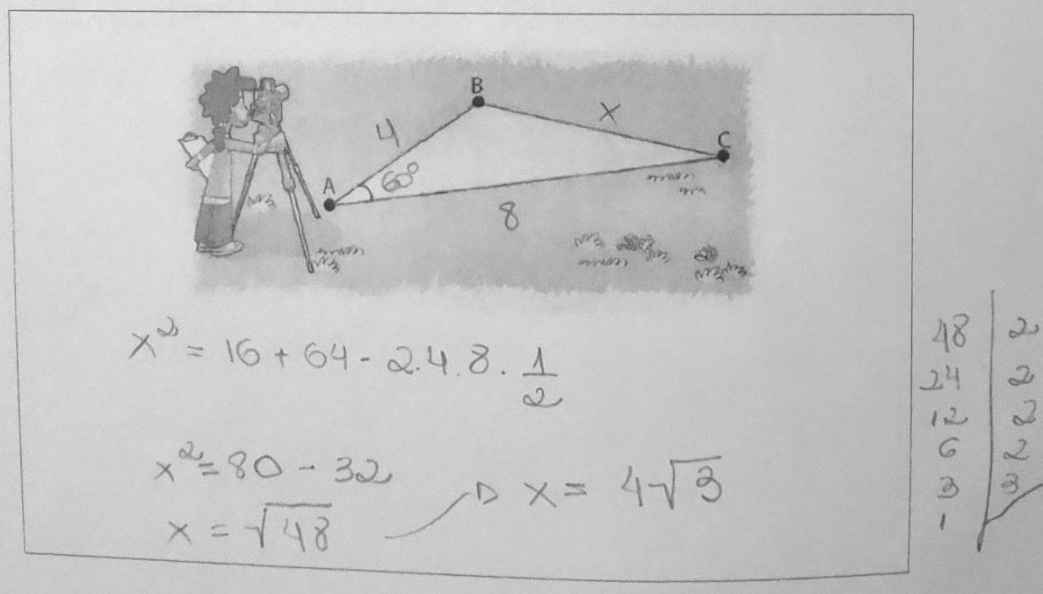 B
x
4
C
A
60°
8
x² = 16 + 64 - 2.4.8. 1/2
x² = 80 - 32
x = √48
x = 4√3
48 | 2
24 | 2
12 | 2
6 | 2
3 | 3
1